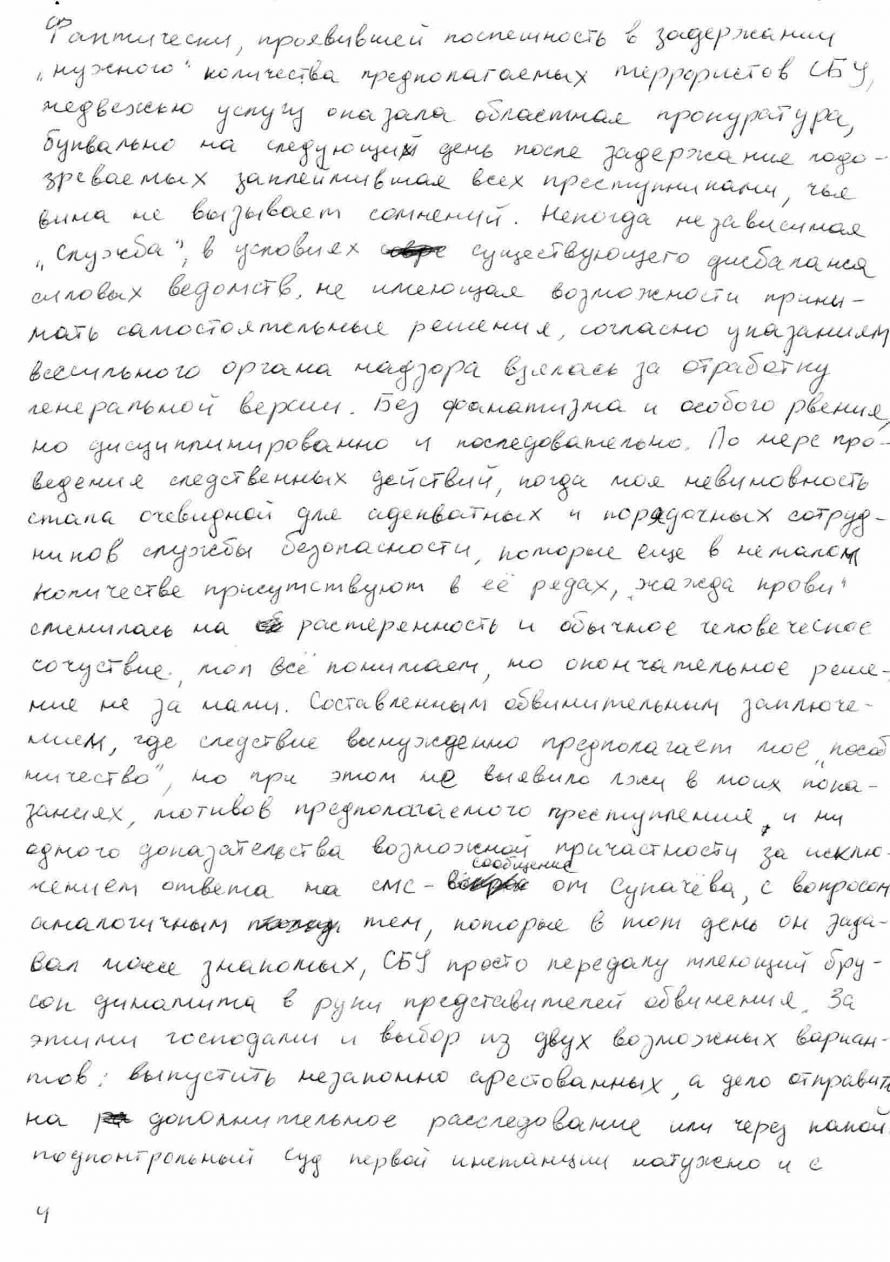 Фактически, проявившей поспешность в задержании
„нужного" количества предполагаемых террористов СБУ,
медвежью услугу оказала областная прокуратура,
буквально на следующий день после задержание подо-
зреваемых заклеймившая всех преступниками, чья
вина не вызывает сомнений. Некогда независимая
„Служба", в условиях существующего дисбаланса
силовых ведомств, не имеющая возможности прини-
мать самостоятельные решения, согласно указаниям
всесильного органа надзора взялась за отработку
генеральной версии. Без фанатизма и особого рвения,
но дисциплинированно и последовательно. По мере про-
ведения следственных действий, когда моя невиновность
стала очевидной для адекватных и порядочных сотруд-
ников службы безопасности, которые еще в немалом
количестве присутствуют в её редах, „жажда крови"
сменилась на растеренность и обычное человеческое
сочуствие, мол всё понимаем, но окончательное реше-
ние не за нами. Составленным обвинительным заключе-
нием, где следствие вынужденно предполагает мое „пособ
ничество", но при этом не выявило лжи в моих пока-
заниях, мотивов предполагаемого преступления, и ни
одного доказательства возможной причастности за исклю-
чением ответа на смс- сообщение от Супачёва, с вопросом
аналогичным тем, которые в тот день он зада-
вал массе знакомых, СБУ просто передалу тлеющий бру-
сок динамита в руки представителей обвинения. За
этими господами и выбор из двух возможных вариан-
тов: выпустить незаконно арестованных, а дело отправить
на дополнительное расследование или через какой-
подконтрольный суд первой инстанции натужно и с
4